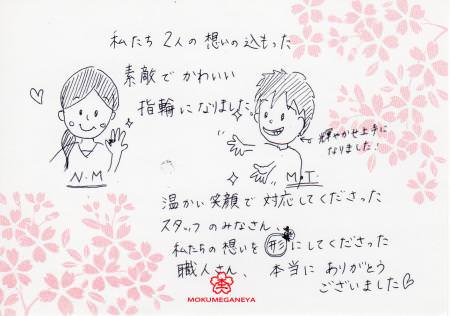 私たち 2人の 想いの 込もった
素敵で かわいい
指輪に なりました
N.M
M.T.
輝やかせ上手に
なりました!
温かい 笑顔で 対応してくださった
スタッフ の みなさん、
私たちの 想いを 形 に してくださった
職人さん、 本当に ありがとう
ございました♡
MOKUMEGANEYA